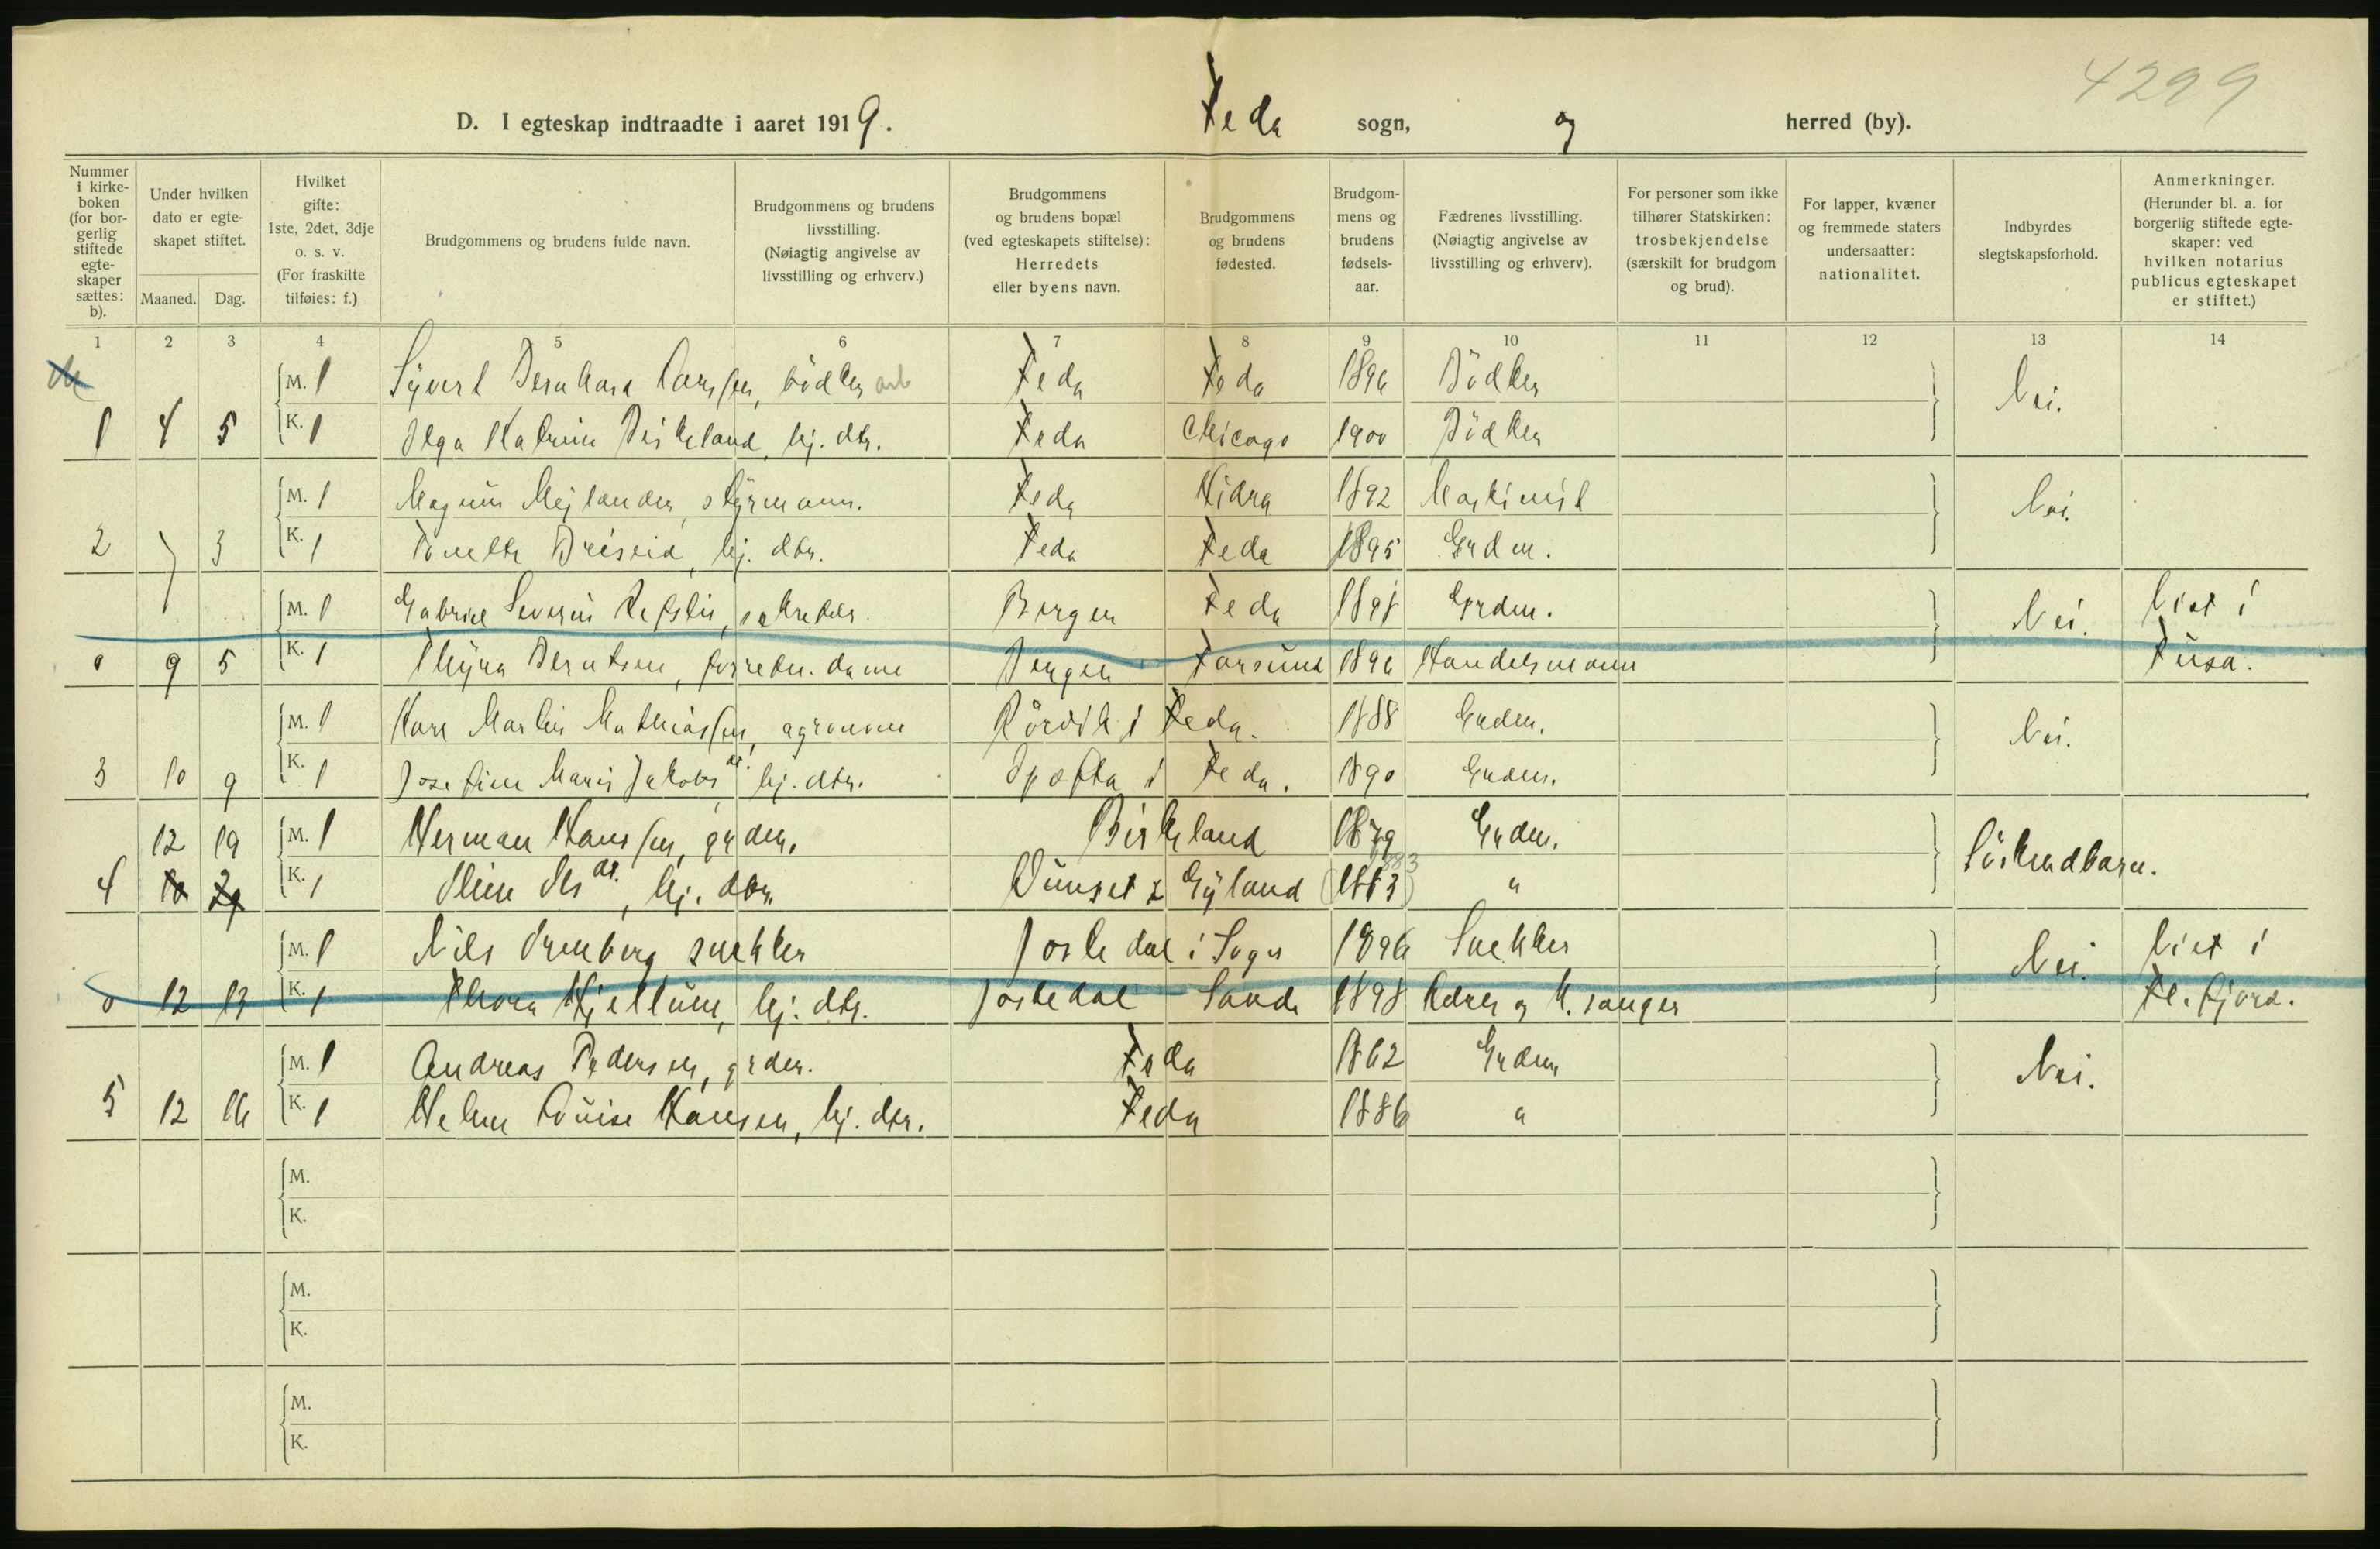 4299
D. I egteskap indtraadte i aaret 1919. Feda sogn, og herred (by).
Nummer i kirkeboken (for borgerlig stiftede egteskaper sættes: b).
Under hvilken dato er egteskapet stiftet.
Maaned. Dag.
Hvilket gifte: 1ste, 2det, 3dje o. s. v. (For fraskilte tilføies: f.)
Brudgommens og brudens fulde navn.
Brudgommens og brudens livsstilling. (Nøiagtig angivelse av livsstilling og erhverv.)
Brudgommens og brudens bopæl (ved egteskapets stiftelse): Herredets eller byens navn.
Brudgommens og brudens fødested.
Brudgommens og brudens fødselsaar.
Fædrenes livsstilling. (Nøiagtig angivelse av livsstilling og erhverv).
For personer som ikke tilhører Statskirken: trosbekjendelse (særskilt for brudgom og brud).
For lapper, kvæner og fremmede staters undersaatter: nationalitet.
Indbyrdes slegtskapsforhold.
Anmerkninger. (Herunder bl. a. for borgerlig stiftede egteskaper: ved hvilken notarius publicus egteskapet er stiftet.)
1 2 3 4 5 6 7 8 9 10 11 12 13 14
M. 1 Syvert Bernhard Larssen, bödker arb Feda Feda 1896 Bödker Nei.
1 4 5 K. 1 Olga Katrine Birkeland, hj. dtr. Feda Chicago 1900 Bödker
M. 1 Magnus Mejlænder, styrmann. Feda Hidra 1892 Maskinist Nei.
2 7 3 K. 1 Tonette Briseid, hj. dtr. Feda Feda 1895 Grdm.
M. 1 Gabriel Severin Refstie, sekretær. Bergen Feda 1891 Grdm. Nei. Viet i
0 9 5 K. 1 Thyra Berntsen, forretn. dame Bergen Farsund 1896 Handelsmann Fusa.
M. 1 Karl Martin Mathiassen, agronom Rörvik i Feda. 1888 Grdm. Nei.
3 10 9 K. 1 Josefine Marie Jakobsdr. hj. dtr. i Feda. 1890 Grdm.
12 19 M. 1 Herman Hanssen, grdm. Birkeland 1879 Grdm. Söskendbarn.
4 10 29 K. 1 Oline Olsdr., hj. dtr. Gyland 1883 1883 "
M. 1 Nils snekker Jostedal i Sogn 1896 Snekker Nei. Viet i
0 12 13 K. 1 Thora Kjellune, hj. dtr. Jostedal Sande 1898 Lærer og k. sanger Fl. fjord.
M. 1 Andreas Pedersen, grdm. Feda 1862 Grdm. Nei.
5 12 16 K. 1 Helene Louise Hansen, hj. dtr. Feda 1886 "
M.
K.
M.
K.
M.
K.